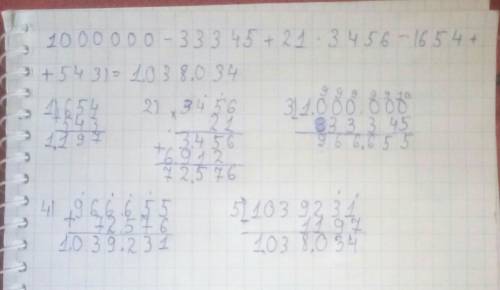 1000000 - 33345 + 21 · 3456 - (654 +
+ 543) = 1.038.034
1) 654
+ 543
1.197
2) 3456
× 21
3.456
+ 6912
72.576
3) 1.000.000
- 33345
966.655
4) 966655
+ 72576
1.039.231
5) 1039231
- 1197
1.038.034